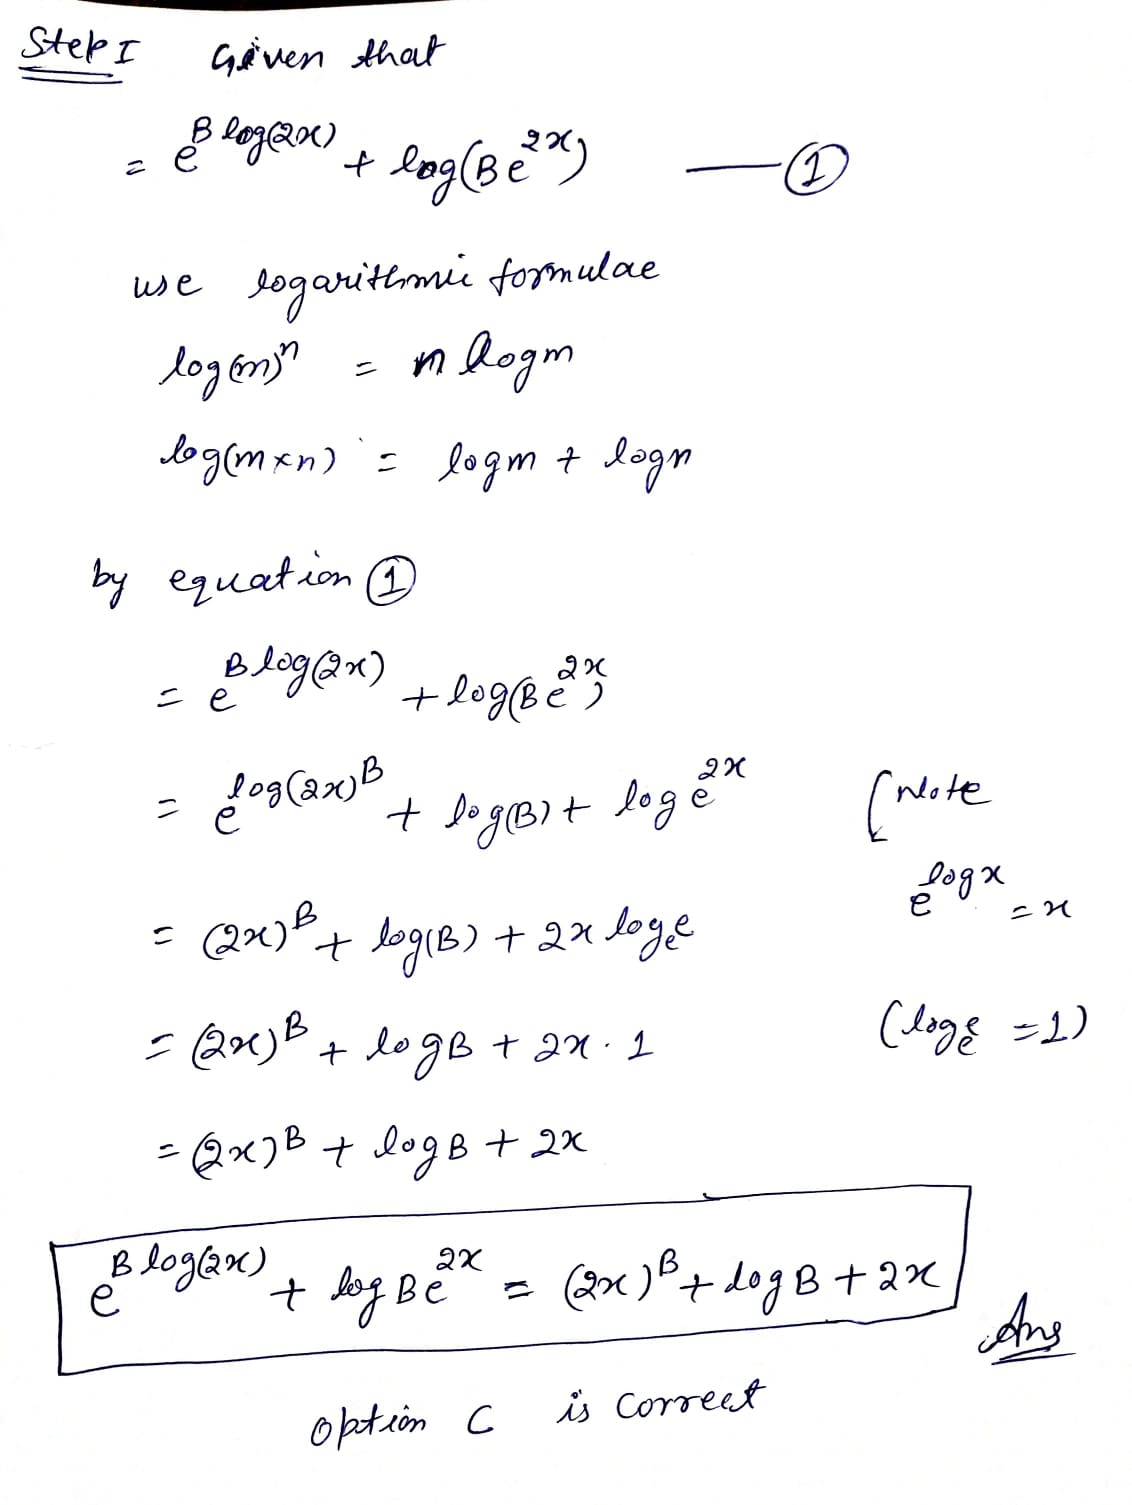 Step I Given that
= e^{B log(2x)} + log(B e^{2x}) —①
use logarithmic formulae
log(m)^n = n log m
log(m×n) = log m + log n
by equation ①
= e^{B log(2x)} + log(B e^{2x})
= e^{log(2x)^B} + log(B) + log e^{2x} [Note
e^{log x} = x
= (2x)^B + log(B) + 2x log_e e
= (2x)^B + log B + 2x · 1 (log_e e = 1)
= (2x)^B + log B + 2x
e^{B log(2x)} + log B e^{2x} = (2x)^B + log B + 2x
Ans
option C is correct